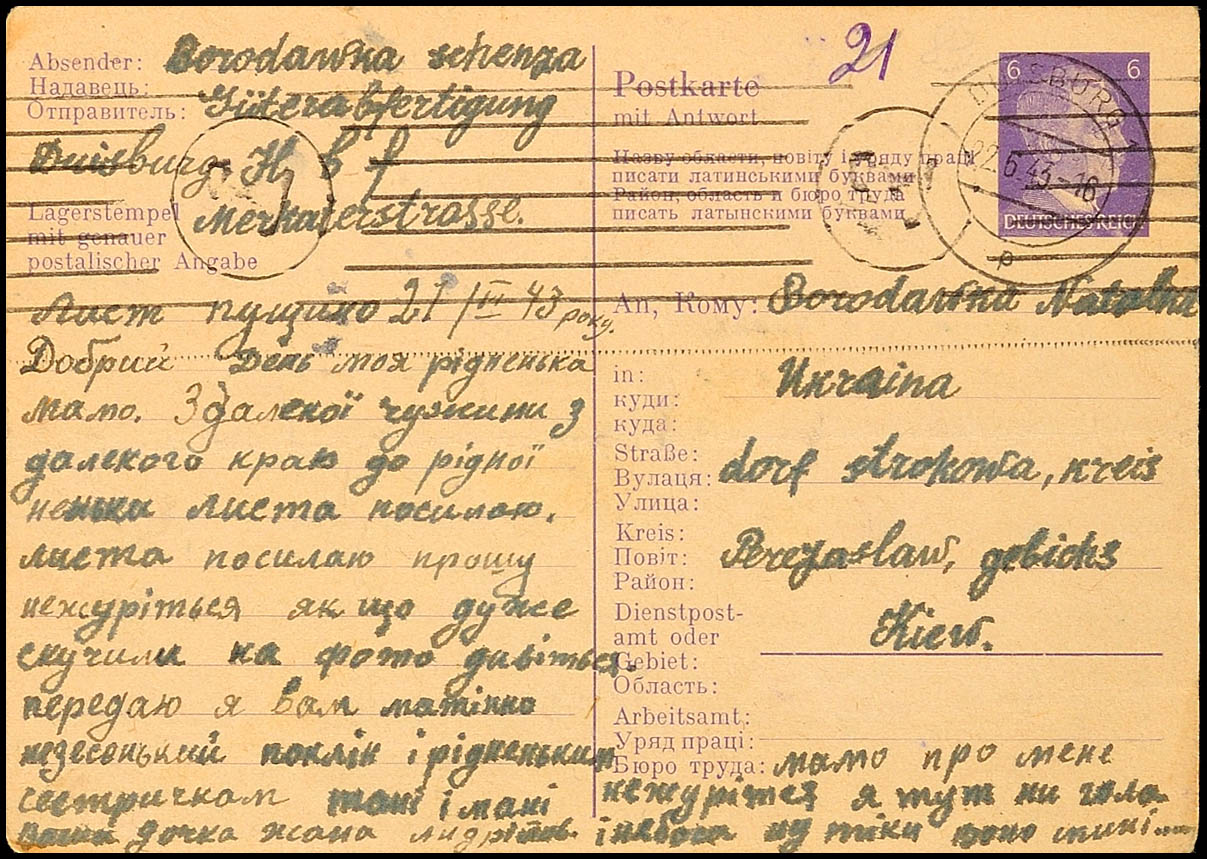 Absender: Borodawka schenza
Надавець:
Отправитель: Güterabfertigung
Duisburg. H b f
Lagerstempel
mit genauer
postalischer Angabe
Merkaterstrasse.
21
Postkarte
mit Antwort
Назву области, повіту і уряду праці
писати латинськими буквами
Район, область и бюро труда
писать латынскими буквами
6 6
DUISBURG 1
22.6.43-16
DEUTSCHES REICH
Лист пущино 21/III 43 року.
Добрий День моя рідненька
мамо. Здалекої чужини з
далекого краю до рідної
неньки листа посилаю.
листа посилаю прошу
нежуріться як що дуже
скучили на фото дивіться.
передаю я вам матінко
незесенький поклін і рідненьким
сестричкам тані і мані
дочка
An, Кому: Borodawka Natalka
in: Ukraina
куди:
куда:
Straße: dorf strokowa, kreis
Вулаця:
Улица:
Kreis: Perejaslaw, gebichs
Повіт:
Район:
Dienstpost-
amt oder
Gebiet: Kiew.
Область:
Arbeitsamt:
Уряд праці:
Бюро труда:
мамо про мене
нежурітся я тут ни гола
і небоса ну тіки